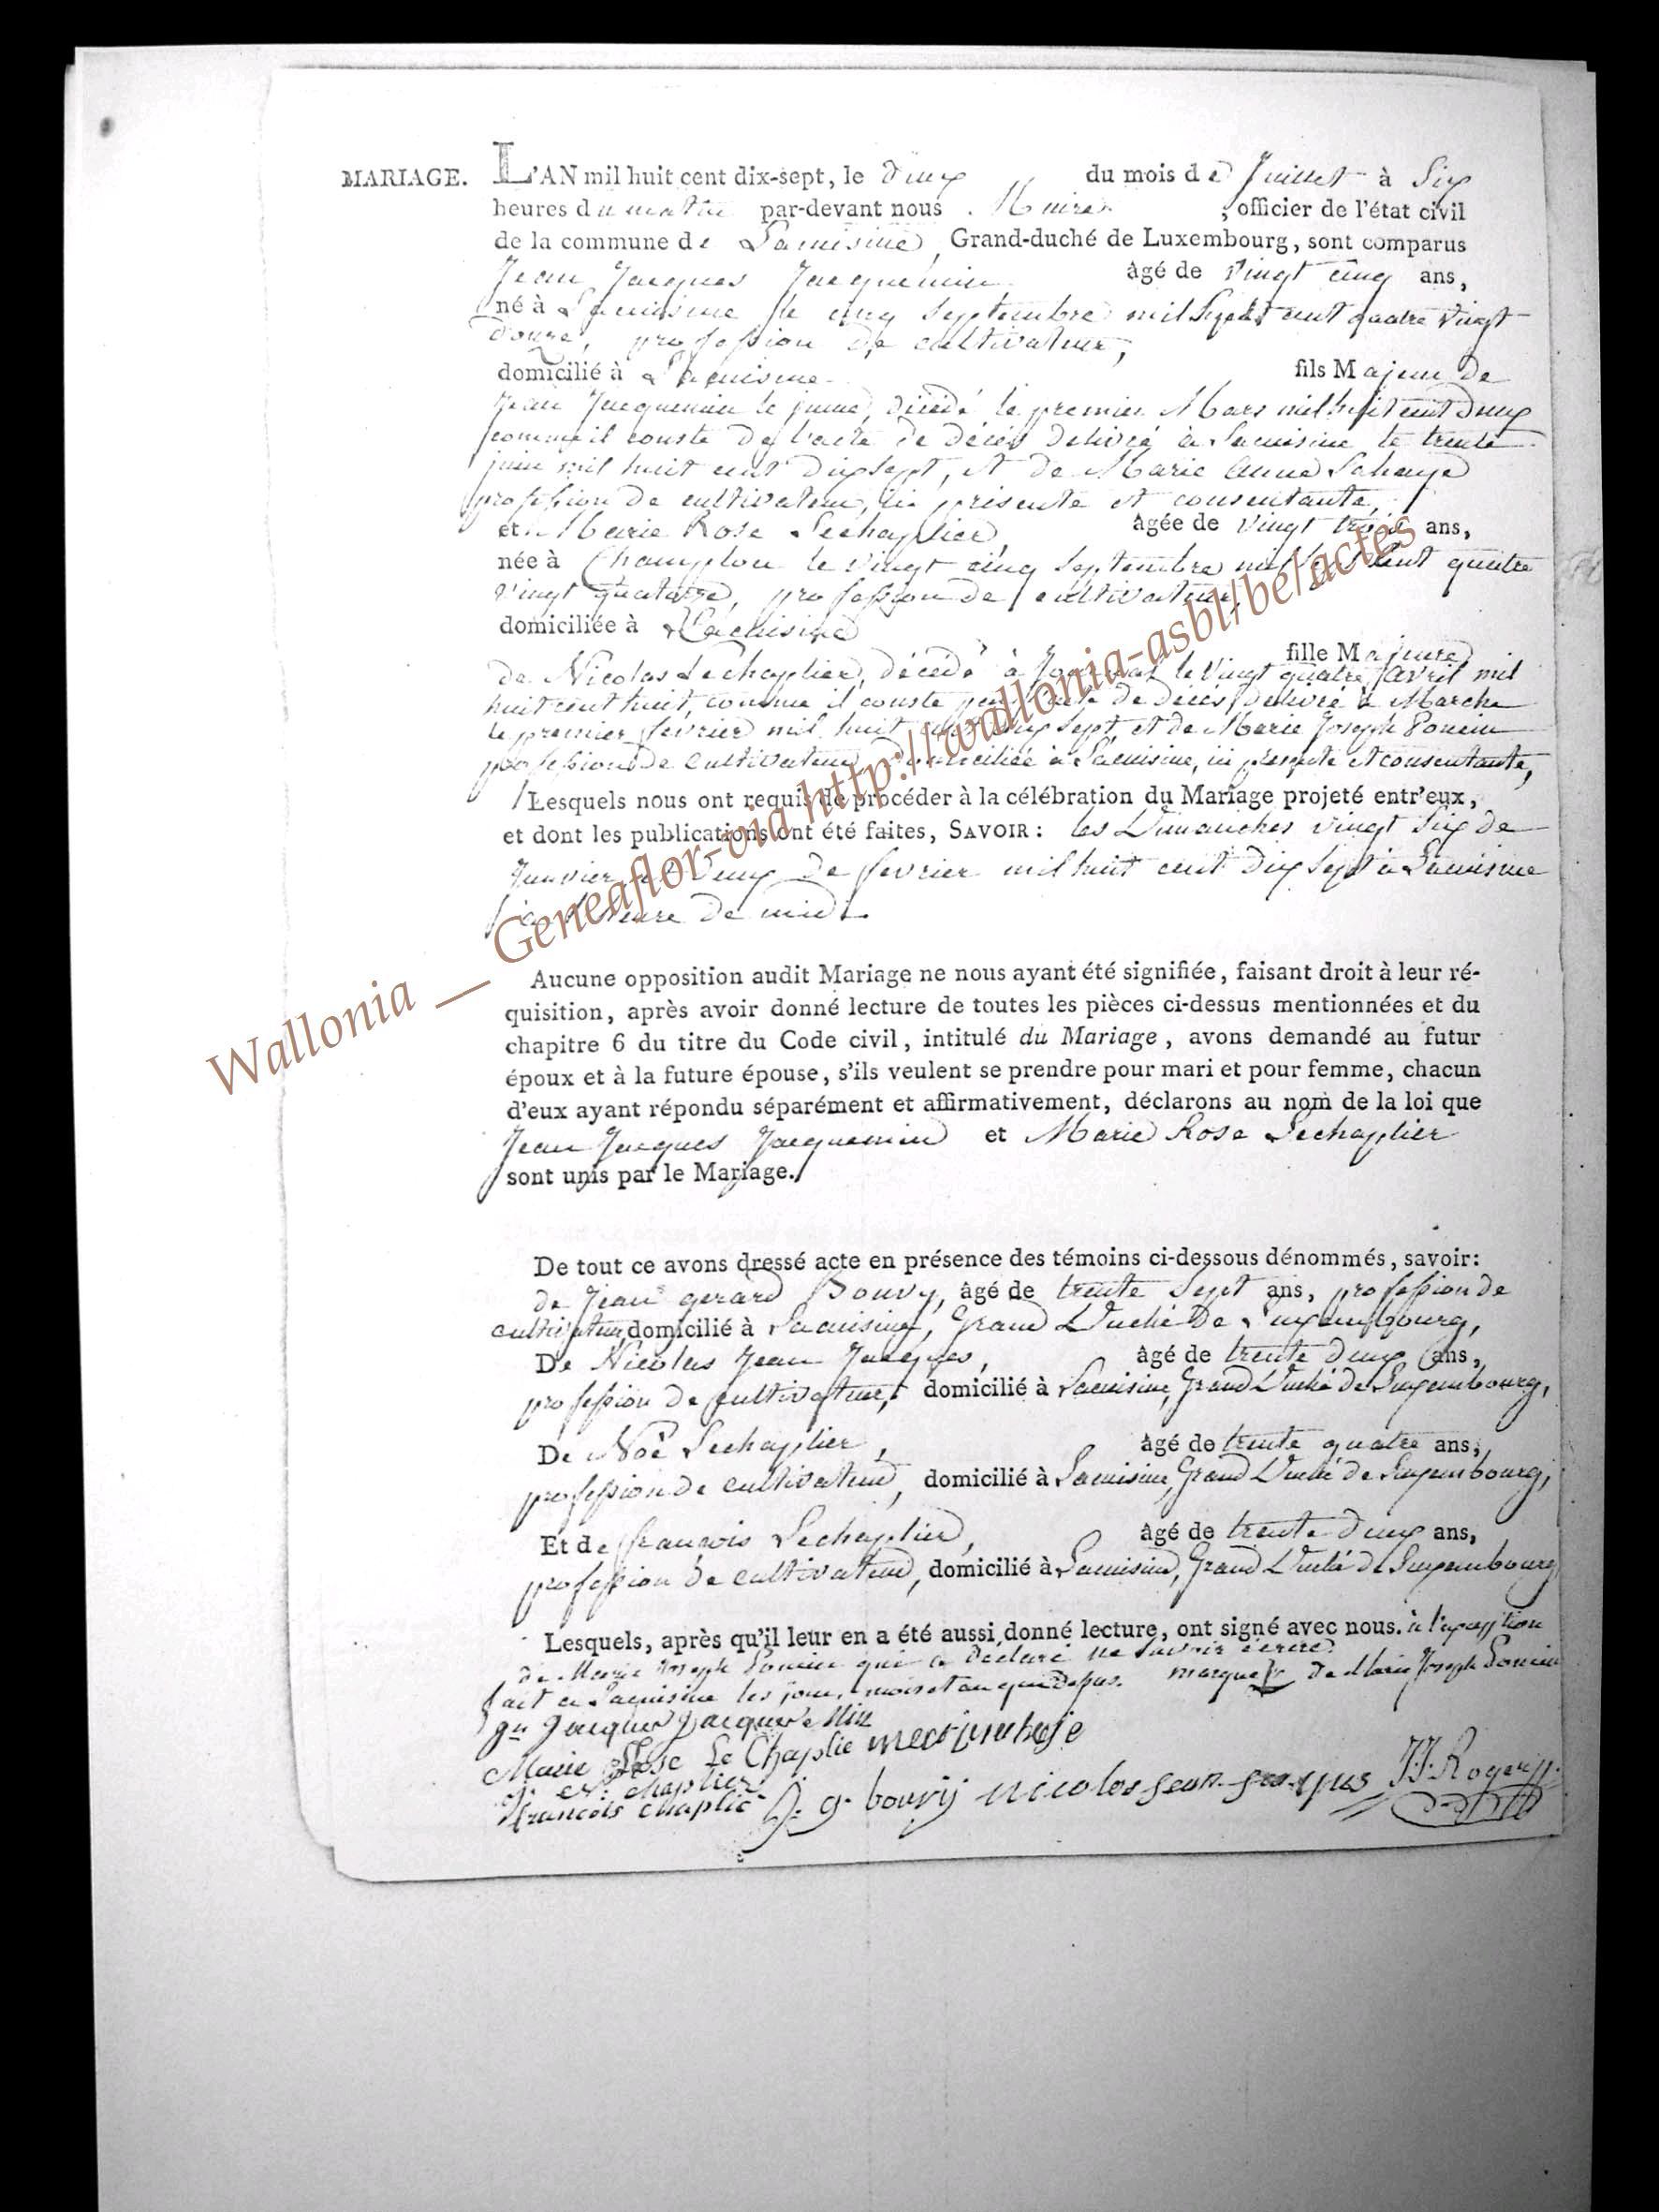 MARIAGE. L'AN mil huit cent dix-sept, le deux du mois de Juillet à Six
heures du matin par-devant nous Maire, officier de l'état civil
de la commune de Lacuisine, Grand-duché de Luxembourg, sont comparus
Jean Jacques Jacquemin âgé de vingt cinq ans,
né à Lacuisine le cinq Septembre mil Sept cent quatre vingt
douze, profession de cultivateur,
domicilié à Lacuisine fils Majeur de
Jean Jacquemin le jeune, décédé le premier Mars mil huit cent deux
comme il conste de l'acte de décès delivré à Lacuisine le trente
juin mil huit cent dix sept, et de Marie Anne Lahaye
profession de cultivateur, ici présente et consentante,
et Marie Rose Lechaplier, âgée de vingt trois ans,
née à Champlon le vingt cinq Septembre mil Sept cent quatre
vingt quatorze, profession de cultivateur,
domiciliée à Lacuisine
fille Majeure
de Nicolas Lechaplier, décédé à le vingt quatre avril mil
huit cent huit, comme il conste par l'acte de décès delivré à Marche
le premier fevrier mil huit cent dix sept, et de Marie Joseph Poncin
profession de cultivateur, domiciliée à Lacuisine, ici présente et consentante,
Lesquels nous ont requis de procéder à la célébration du Mariage projeté entr'eux,
et dont les publications ont été faites, SAVOIR : les Dimanches vingt Six de
Janvier et deux de fevrier mil huit cent dix Sept à Lacuisine
à l'heure de midi.
Aucune opposition audit Mariage ne nous ayant été signifiée, faisant droit à leur ré-
quisition, après avoir donné lecture de toutes les pièces ci-dessus mentionnées et du
chapitre 6 du titre du Code civil, intitulé du Mariage, avons demandé au futur
époux et à la future épouse, s'ils veulent se prendre pour mari et pour femme, chacun
d'eux ayant répondu séparément et affirmativement, déclarons au nom de la loi que
Jean Jacques Jacquemin et Marie Rose Lechaplier
sont unis par le Mariage.
De tout ce avons dressé acte en présence des témoins ci-dessous dénommés, savoir:
de Jean gerard Bouvy, âgé de trente Sept ans, profession de
cultivateur, domicilié à Lacuisine, Grand Duché De Luxembourg,
De Nicolas Jean Jacques, âgé de trente deux ans,
profession de cultivateur, domicilié à Lacuisine, Grand Duché de Luxembourg,
De Noê Lechaplier, âgé de trente quatre ans,
profession de cultivateur, domicilié à Lacuisine, Grand Duché de Luxembourg,
Et de françois Lechaplier, âgé de trente deux ans,
profession de cultivateur, domicilié à Lacuisine, Grand Duché de Luxembourg
Lesquels, après qu'il leur en a été aussi donné lecture, ont signé avec nous. à l'exception
de Marie Joseph Poncin qui a déclaré ne savoir écrire.
fait à Lacuisine les jour, mois et an que dessus. marque de Marie Joseph Poncin
Jn Jacques Jacquemin
Marie Rose Le Chaplie
chaplier
francois chaplie J. g. bouvij nicolas jean jacques JJ. Roger
Wallonia __ Geneaflor-via http://wallonia-asbl/be/actes